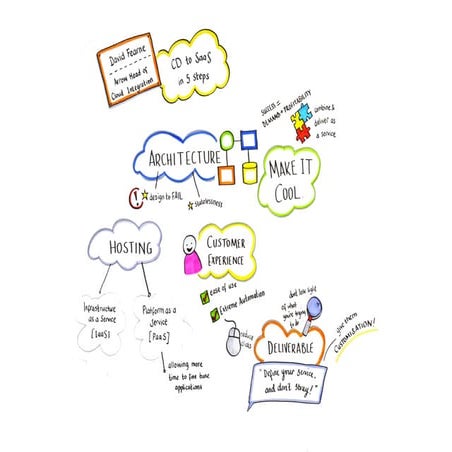 David Fearne
Arrow Head of
Cloud Integration
CD to SaaS
in 5 steps
SUCCESS =
DEMAND + PROFITABILITY
combine &
deliver as
a service
ARCHITECTURE
design to FAIL
statelessness
MAKE IT
COOL
HOSTING
CUSTOMER
EXPERIENCE
Infrastructure
as a Service
[IaaS]
Platform as a
Service
[PaaS]
allowing more
time to fine tune
applications
ease of use
Extreme Automation
reduce
clicks
don't lose sight
of what
you're trying
to do
give them
CUSTOMISATION!
DELIVERABLE
"Define your service,
and don't stray!"